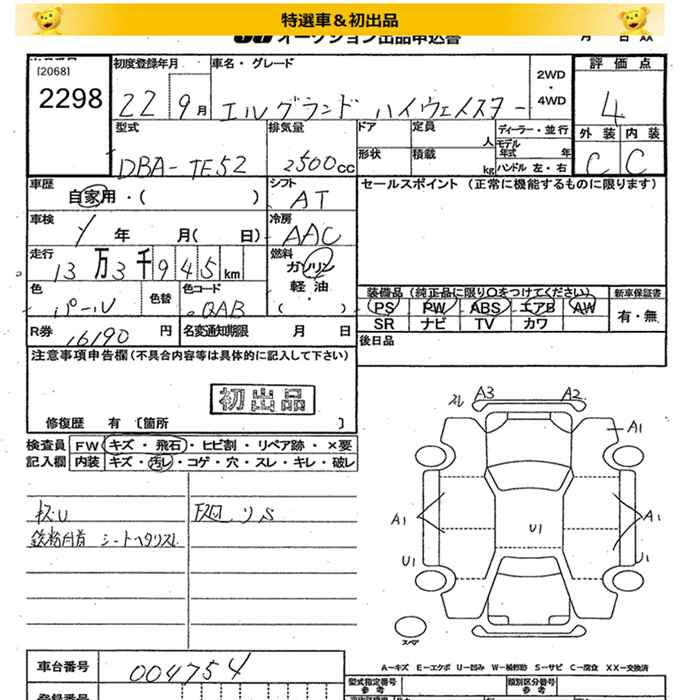 特選車＆初出品
オークション出品申込書
月 日 XX
[2068]
2298
初度登録年月
22 9月
車名・グレード
エルグランド ハイウェイスター
2WD
・
4WD
評価点
4
外装 内装
C C
型式
DBA-TE52
排気量
2500cc
ドア 定員
人
形状 積載
kg
ディーラー・並行
モデル年式 年
ハンドル 左・右
車歴
自家用・( )
シフト
AT
セールスポイント (正常に機能するものに限ります)
車検
年 月( 日)
冷房
AAC
走行
13万3千945km
燃料
ガソリン
軽油
( )
色
パール
色替
色コード
QAB
装備品 (純正品に限り○をつけてください) 新車保証書
PS PW ABS エアB AW
SR ナビ TV カワ
有・無
R券
16190円
名変通知期限 月 日
後日品
注意事項申告欄(不具合内容等は具体的に記入して下さい)
初出品
修復歴 有 [箇所 ]
検査員
記入欄
FW キズ・飛石・ヒビ割・リペア跡・×要
内装 キズ・汚レ・コゲ・穴・スレ・キレ・破レ
A3 A2
A1
A1 A1
U1
U1 U1
スペア
A=キズ E=エクボ U=凹み W=補修跡 S=サビ C=腐食 XX=交換済
車台番号
004754
型式指定番号
参考
類別区分番号
参考
登録番号